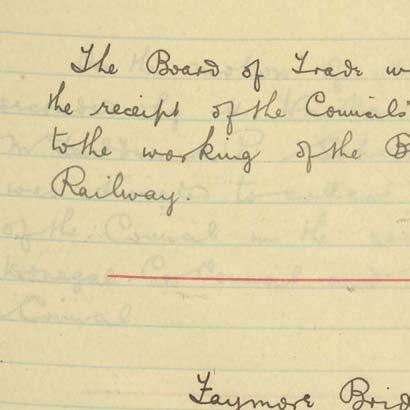 The Board of Trade w
the receipt of the Councils'
to the working of the B
Railway.
Faymore Brid